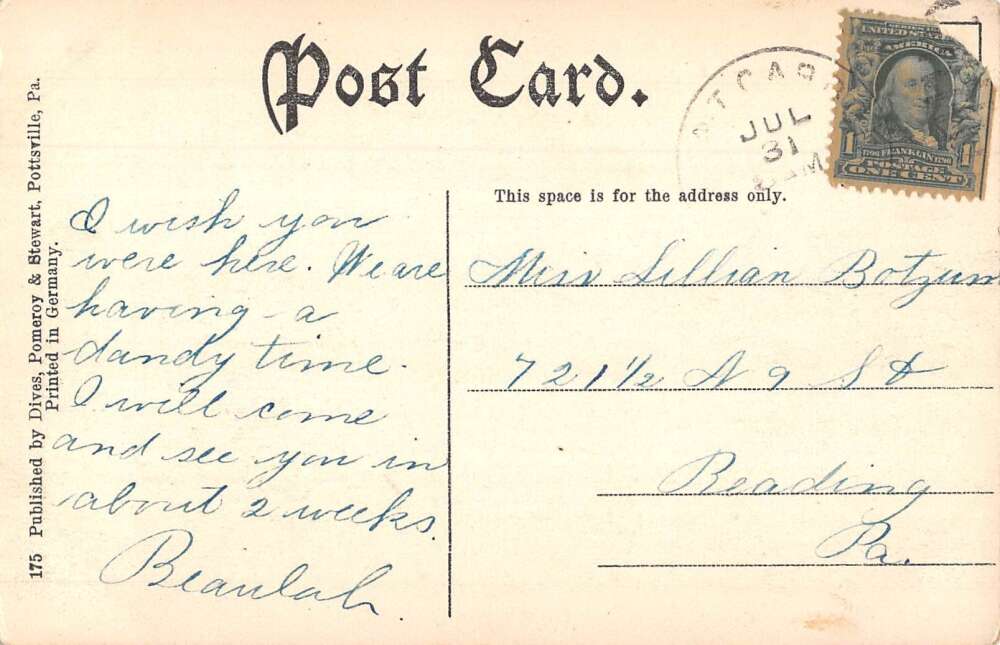 Post Card.
MT CAR
JUL
31
AM
SERIES 1902
UNITED STATES
AMERICA
1 1706 FRANKLIN 1790 1
POSTAGE
ONE CENT
This space is for the address only.
175 Published by Dives, Pomeroy & Stewart, Pottsville, Pa.
Printed in Germany.
I wish you
were here. We are
having a
dandy time.
I will come
and see you in
about 2 weeks.
Beaulah.
Miss Lillian Botzum
721½ N 9 St
Reading
Pa.